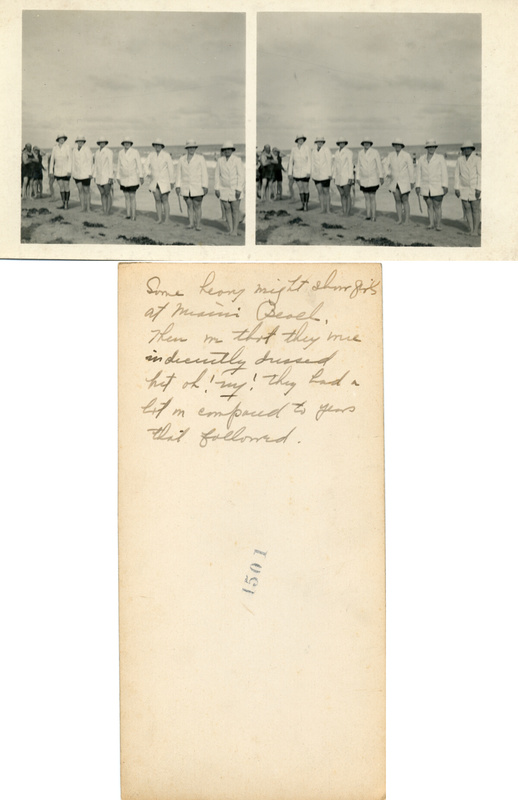 Some heavy might show girls
at Miami Beach.
Then on that they were
indecently dressed
but oh! my! they had a
lot on compared to years
that followed.
1501